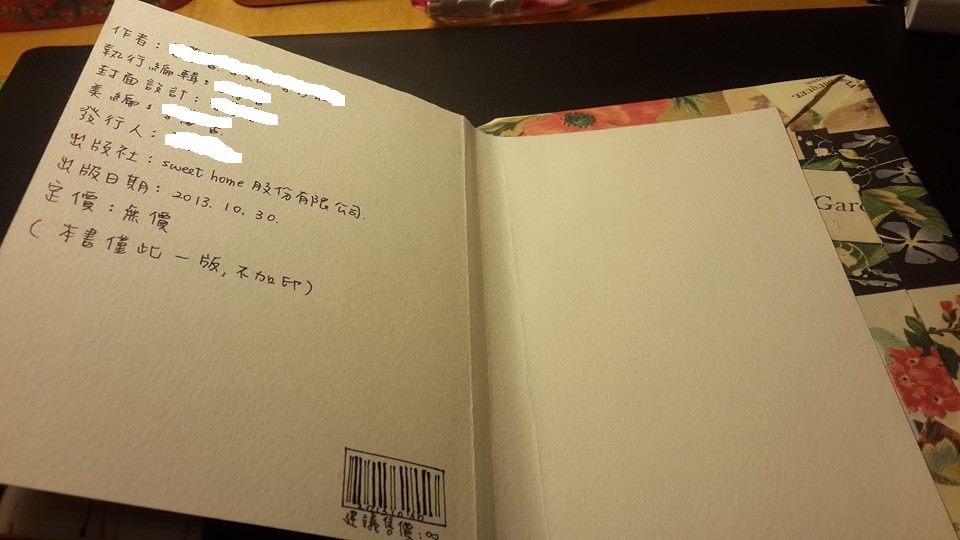 作者：
執行編輯：
封面設計：
美編：
發行人：
出版社：sweet home 股份有限公司.
出版日期：2013. 10. 30.
定價：無價
(本書僅此一版, 不加印)
建議售價：∞
Gard